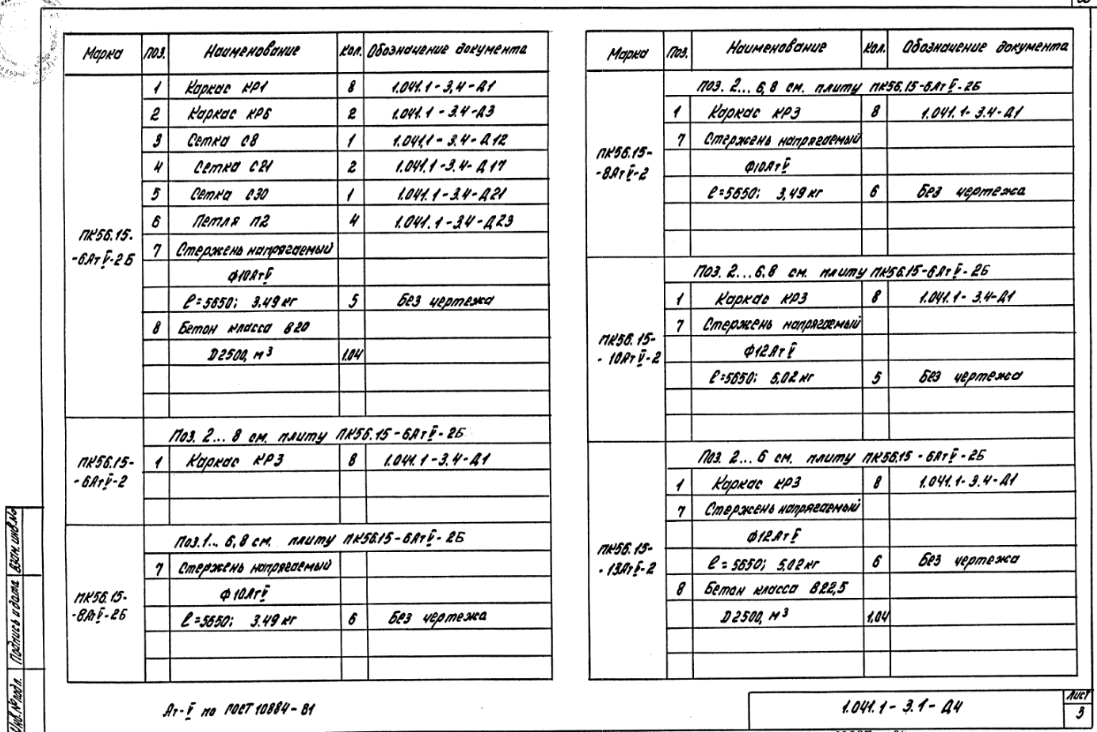 Марка Поз. Наименование Кол. Обозначение документа
ПК56.15-
-6АтV-2Б
1 Каркас КР1 8 1.041.1-3.4-Д1
2 Каркас КР6 2 1.041.1-3.4-Д3
3 Сетка С8 1 1.041.1-3.4-Д12
4 Сетка С21 2 1.041.1-3.4-Д17
5 Сетка С30 1 1.041.1-3.4-Д21
6 Петля П2 4 1.041.1-3.4-Д23
7 Стержень напрягаемый
Ф10АтV
ℓ=5650; 3.49 кг 5 Без чертежа
8 Бетон класса В20
D2500, м3 1.04
Поз. 2... 8 см. плиту ПК56.15-6АтV-2Б
ПК56.15-
-6АтV-2
1 Каркас КР3 8 1.041.1-3.4-Д1
Поз. 1... 6,8 см. плиту ПК56.15-6АтV-2Б
ПК56.15-
-8АтV-2Б
7 Стержень напрягаемый
Ф10АтV
ℓ=5650; 3.49 кг 6 Без чертежа
Марка Поз. Наименование Кол. Обозначение документа
Поз. 2... 6,8 см. плиту ПК56.15-6АтV-2Б
ПК56.15-
-8АтV-2
1 Каркас КР3 8 1.041.1-3.4-Д1
7 Стержень напрягаемый
Ф10АтV
ℓ=5650; 3,49 кг 6 Без чертежа
Поз. 2... 6,8 см. плиту ПК56.15-6АтV-2Б
ПК56.15-
-10АтV-2
1 Каркас КР3 8 1.041.1-3.4-Д1
7 Стержень напрягаемый
Ф12АтV
ℓ=5650; 5,02 кг 5 Без чертежа
Поз. 2... 6 см. плиту ПК56.15-6АтV-2Б
ПК56.15-
-13АтV-2
1 Каркас КР3 8 1.041.1-3.4-Д1
7 Стержень напрягаемый
Ф12АтV
ℓ=5650; 5,02 кг 6 Без чертежа
8 Бетон класса В22,5
D2500, м3 1,04
Ат-V по ГОСТ 10884-81
1.041.1-3.1-Д4
Лист
3
Инв.№подл. Подпись и дата Взам.инв.№